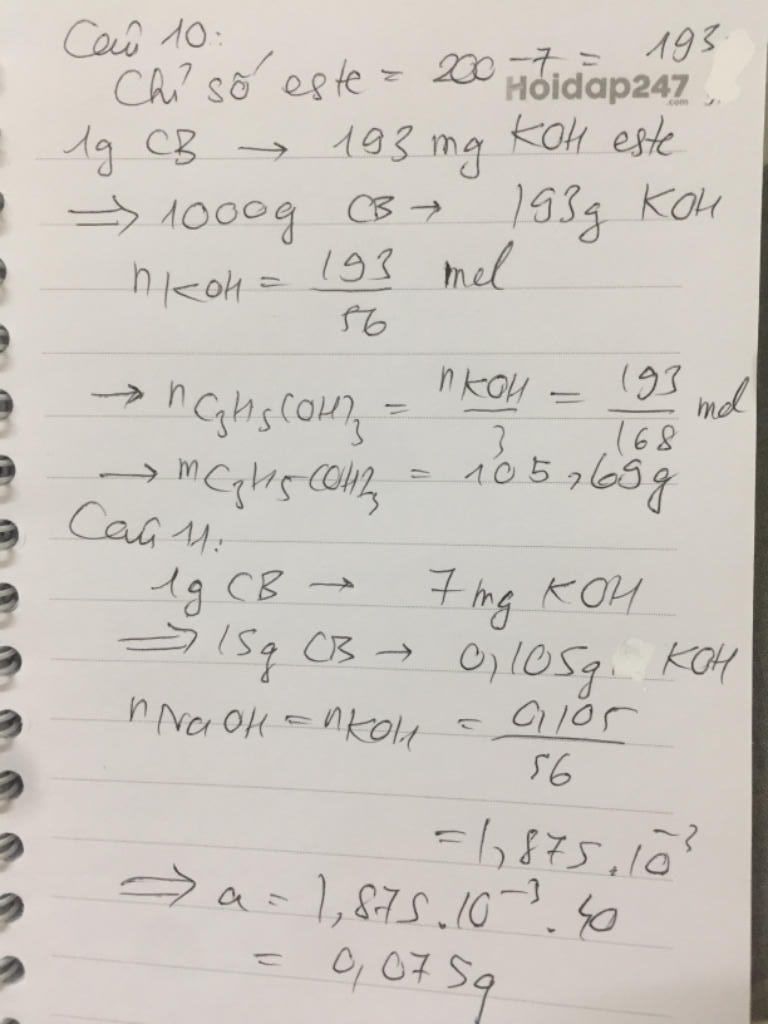 Câu 10:
Chỉ số este = 200 - 7 = 193
Hoidap247
.com
1g CB → 193 mg KOH este
⇒ 1000g CB → 193g KOH
nKOH = 193/56 mol
→ nC3H5(OH)3 = nKOH/3 = 193/168 mol
→ mC3H5(OH)3 = 105,69g
Câu 11:
1g CB → 7mg KOH
⇒ 15g CB → 0,105g KOH
nNaOH = nKOH = 0,105/56
= 1,875.10^-3
⇒ a = 1,875.10^-3 . 40
= 0,075g